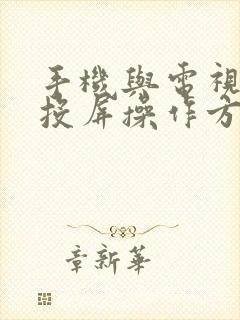 手機與電視
投屏操作方
章新華